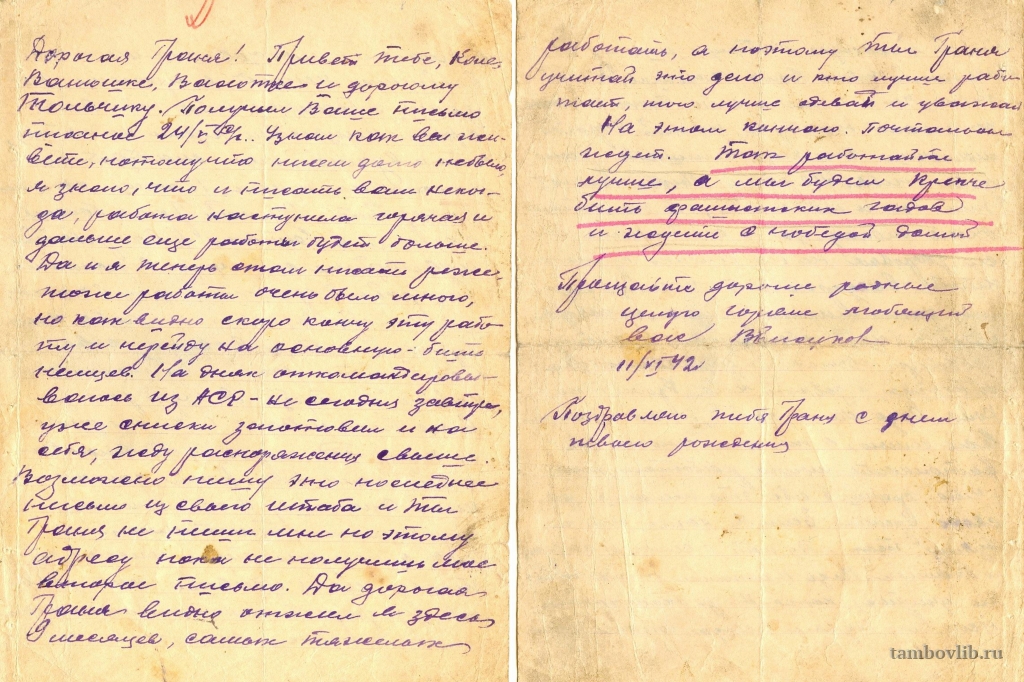 Дорогая Граня! Привет тебе, Коле,
Ванюшке, Валюшке и дорогому
Тольчику. Получил Ваше письмо
писаное 24/V. Узнал как вы жи-
вете, потому что писем долго небыло,
я знаю, что и писать вам неког-
да, работа наступила горячая и
дальше еще работы будет больше.
Да и я теперь стал писать реже,
тоже работы очень было много,
но как видно скоро кончу эту рабо-
ту и перейду на основную - бить
немцев. На днях откомандировы-
ваюсь из АСР - не сегодня завтра,
уже списки заготовил и на
себя, жду распоряжения свыше.
Возможно пишу это последнее
письмо из своего штаба и ты
Граня не пиши мне по этому
адресу пока не получишь мое
второе письмо. Да дорогая
Граня видно отжил я здесь
9 месяцев, самых тяжелых
работать, а поэтому ты Граня
учитай это дело и кто лучше рабо-
тает, того лучше одевай и уважай
На этом кончаю. Почтальон
ждет. Так работайте
лучше, а мы будем крепче
бить фашистских гадов
и ждите с победой домой
Прощайте дорогие родные
целую горячо любящий
вас
11/VI 42г
Поздравляю тебя Граня с днем
твоего рождения
tambovlib.ru